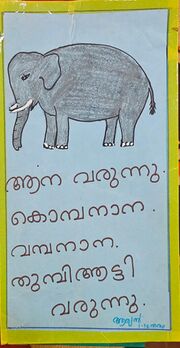 ആന വരുന്നു.
കൊമ്പനാന.
വമ്പനാന.
തുമ്പിആട്ടി
വരുന്നു.